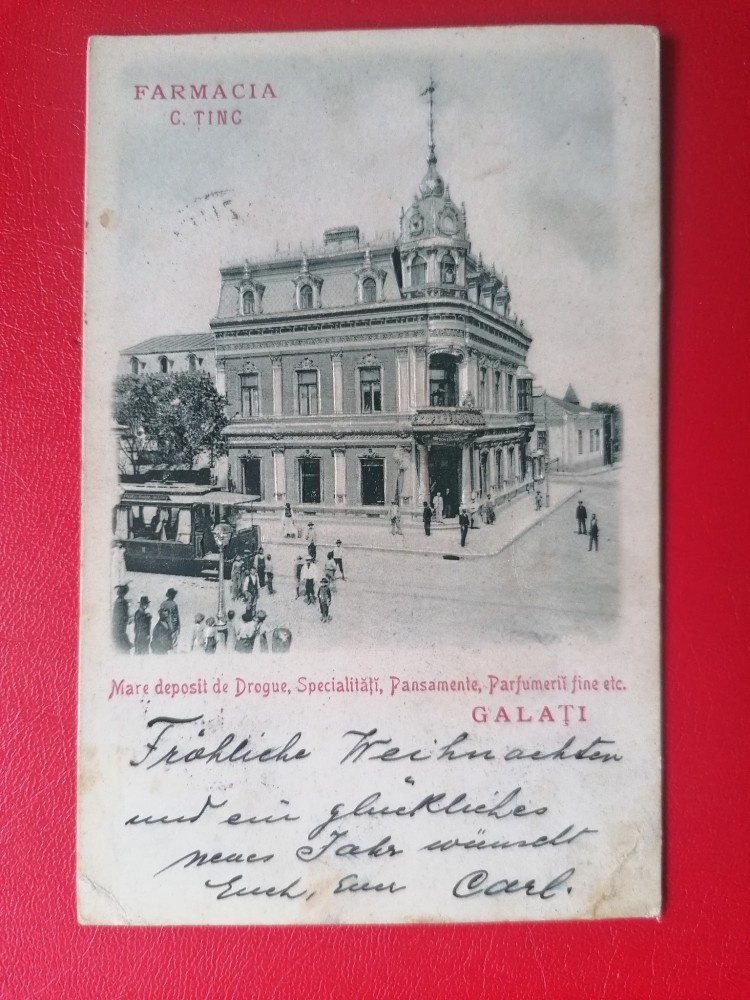 FARMACIA
C. ȚINC
Mare deposit de Drogue, Specialități, Pansamente, Parfumeriĭ fine etc.
GALAȚI
Fröhliche Weihnachten
und ein glückliches
neues Jahr wünscht
Euch, Euer Carl.